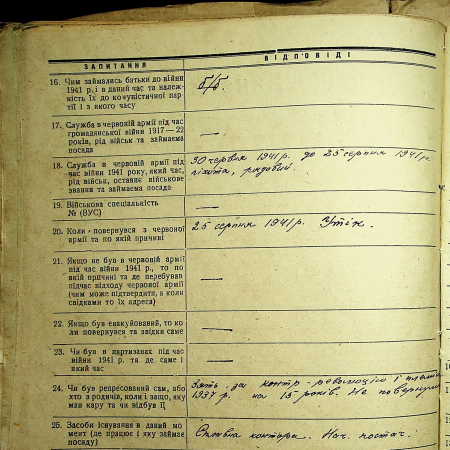 ЗАПИТАННЯ
ВІДПОВІДІ
16. Чим займались батьки до війни
1941 р., і в даний час та належ-
ність їх до комуністичної пар-
тії і з якого часу
б/б.
17. Служба в червоній армії під час
громадянської війни 1917—22
років, рід військ та займаєма
посада
—
18. Служба в червоній армії під
час війни 1941 року, який час,
рід військ, останнє військове
звання та займаєма посада
30 червня 1941 р. до 25 серпня 1941 р.
піхота, рядовий.
19. Військова спеціальність
№ (ВУС)
—
20. Коли повернувся з червоної
армії та по якій причині
25 серпня 1941 р. Утік.
21. Якщо не був в червоній армії
під час війни 1941 р., то по
якій причині та де перебував
підчас відходу червоної армії
(чим може підтвердити, а коли
свідками то їх адреса)
—
22. Якщо був евакуйований, то ко-
ли повернувся та звідки саме
—
23. Чи був в партизанах під час
війни 1941 р. та де саме і
який час
—
24. Чи був репресований сам, або
хто з родичів, коли і защо, яку
мав кару та чи відбув її
Зять за контр-революцію
1937 р. на 15 років. Не повернувся
25. Засоби існування в даний мо-
мент (де працює і яку займає
посаду)
контора. Нач. постач.